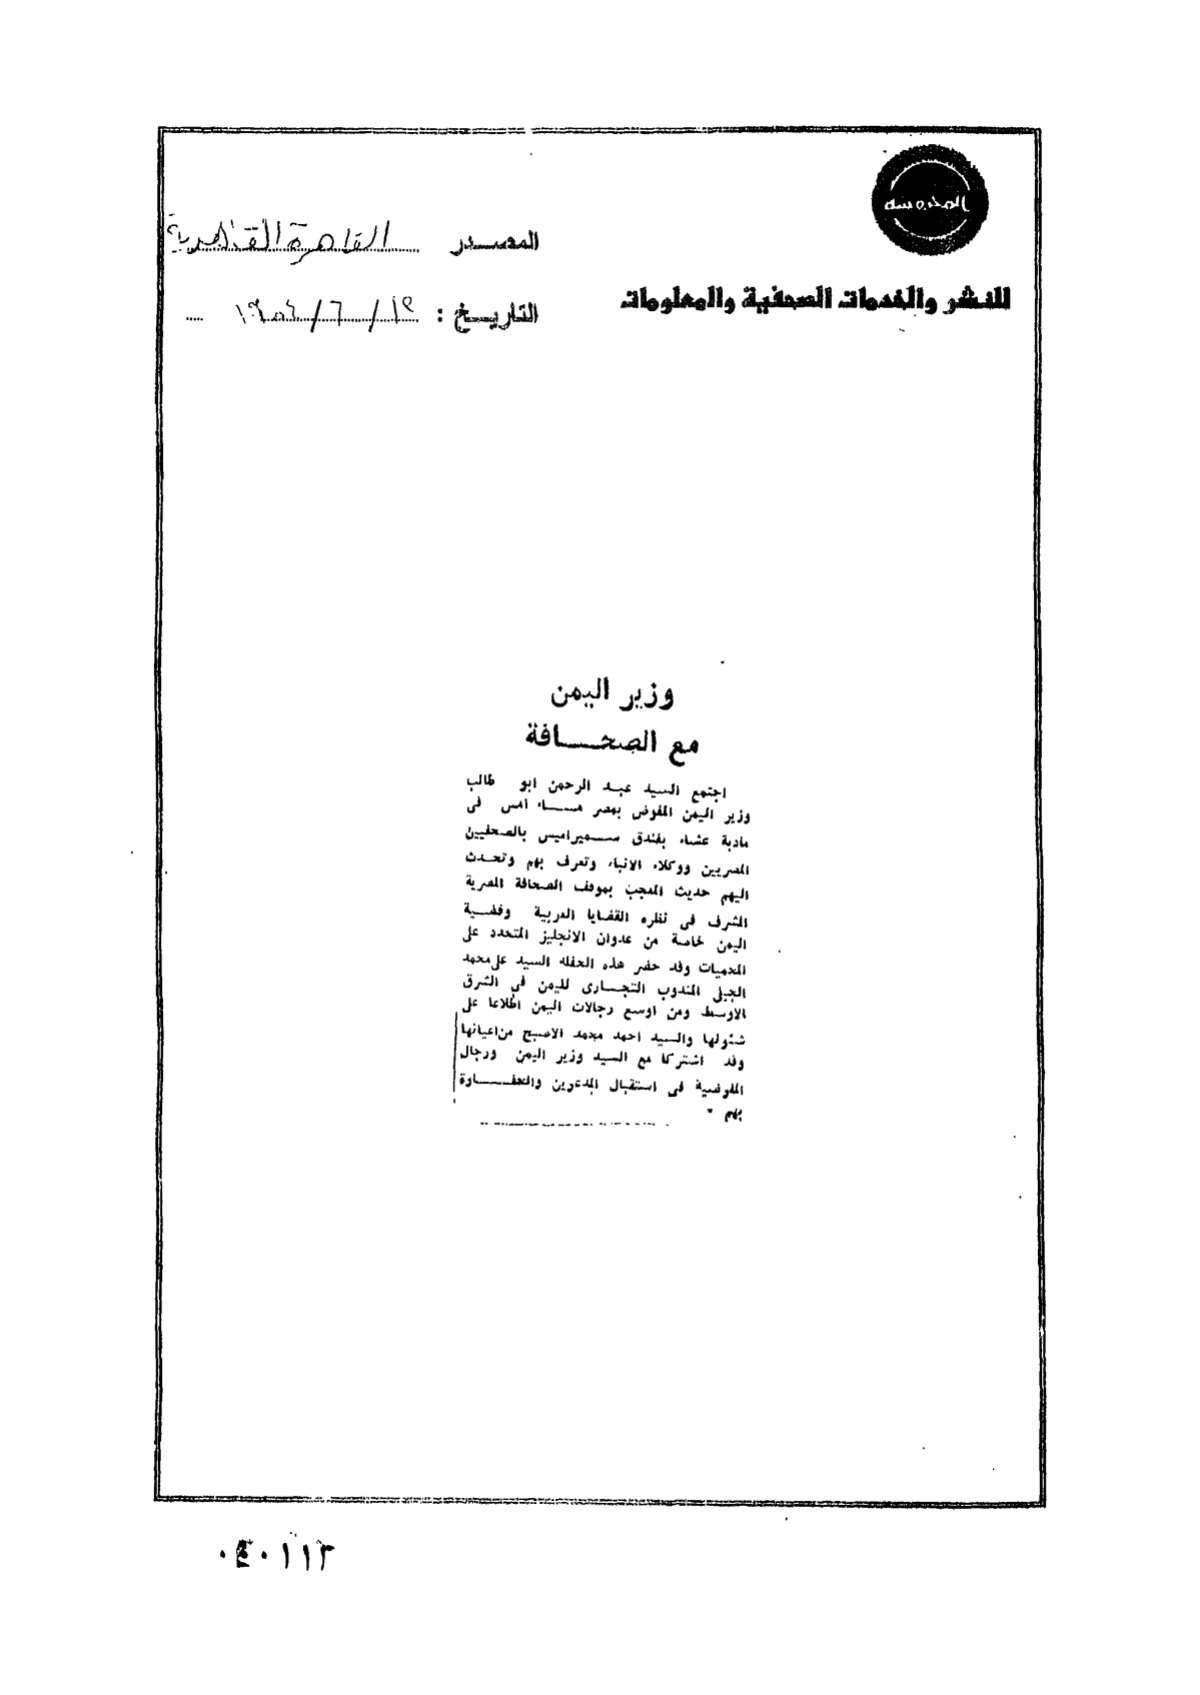 المحروسة
للنشر والخدمات الصحفية والمعلومات
المصدر القاهرة القاهرية
التاريخ : ١٩/ ٦ / ١٩٥٤
وزير اليمن
مع الصحافة
اجتمع السيد عبد الرحمن ابو طالب
وزير اليمن المفوض بمصر مساء امس فى
مادبة عشاء بفندق سميراميس بالصحفيين
المصريين ووكلاء الانباء وتعرف بهم وتحدث
اليهم حديث المعجب بموقف الصحافة المصرية
المشرف فى نظره القضايا العربية وقضية
اليمن خاصة من عدوان الانجليز المتجدد على
المحميات وقد حضر هذه الحفله السيد على محمد
الجبلى المندوب التجارى لليمن فى الشرق
الاوسط ومن اوسع رجالات اليمن اطلاعا على
شئونها والسيد احمد محمد الاصبح من اعيانها
وقد اشتركا مع السيد وزير اليمن ورجال
المفوضية فى استقبال المدعوين والحفاوة
بهم .